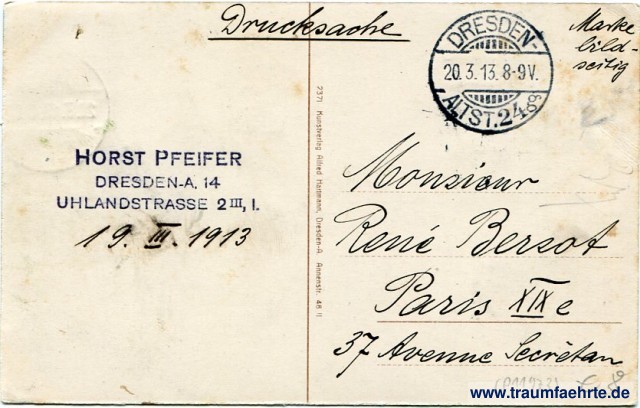 Drucksache
Marke
bild-
seitig
DRESDEN-
20.3.13.8-9V.
ALTST.24
HORST PFEIFER
DRESDEN-A. 14
UHLANDSTRASSE 2 III, I.
19. III. 1913
7371 Kunstverlag Alfred Hartmann, Dresden-A. Annenstr. 48 II
Monsieur
René Bersot
Paris XIXe
37 Avenue Secrètan
www.traumfaehrte.de